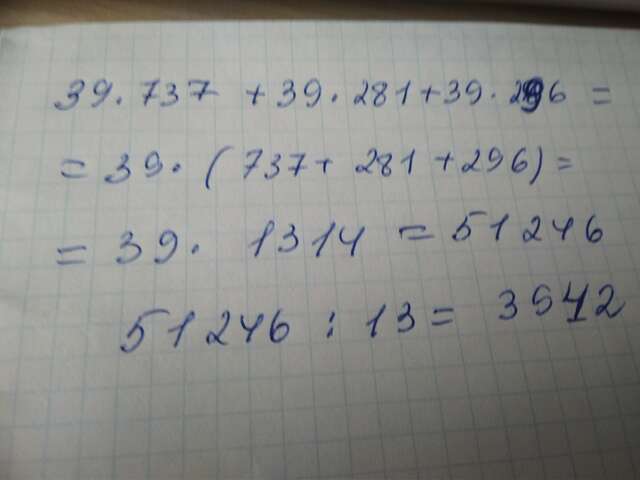 39·737 + 39·281 + 39·296 =
= 39·(737 + 281 + 296) =
= 39· 1314 = 51246
51246 : 13 = 3942